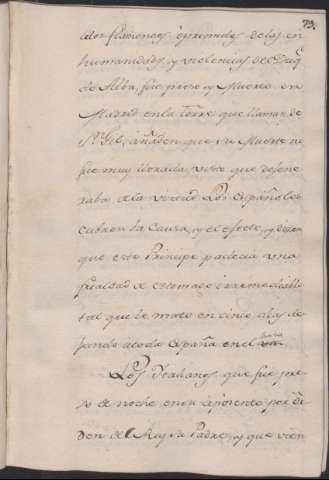 73.
alos flamencos oprimidos delas in
humanidades, y violencias del Duq.
de Alba, fue preso y Muerto en
Madrid en la torre que llaman de
Sn. Gil, añaden que su Muerte
fue muy llorada, visto que dejene
raba de la virtud. Los Españoles
cubren la Causa, y el efecto, y dicen
que este Principe padecia una
frialdad de estomago irremediable
tal que le mato en cinco dias de
jando atoda España en el
Los Ytalianos que fue pre
so de noche en su aposento por
den del Rey su Padre, y que vien